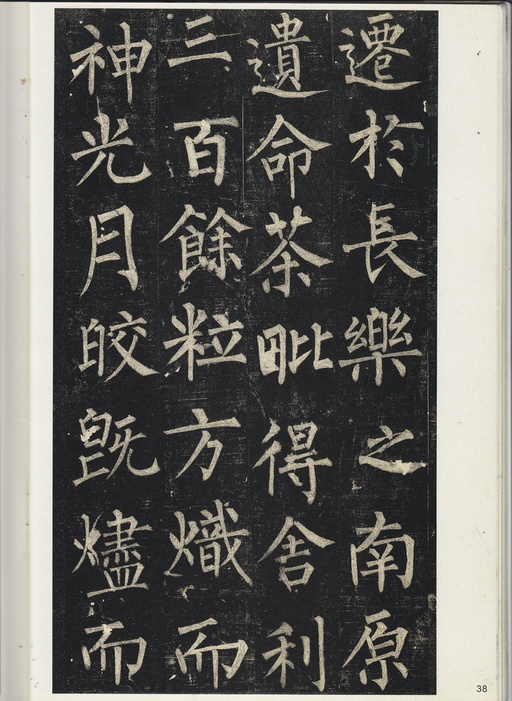 遷於長樂之南原
遺命茶毗得舍利
三百餘粒方熾而
神光月皎既燼而
38